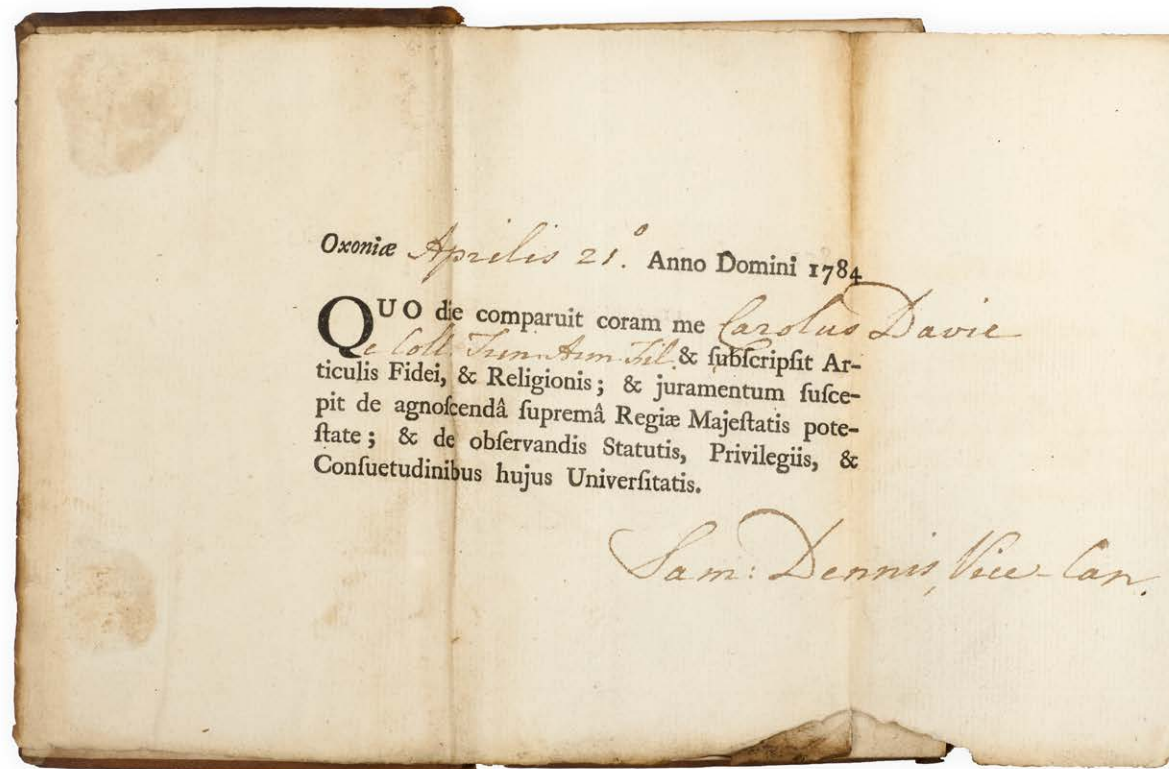 Oxoniæ Aprilis 21.° Anno Domini 1784
QUO die comparuit coram me Carolus Davie
e Coll. Trin. Arm. Fil. & ſubſcripſit Ar-
ticulis Fidei, & Religionis; & juramentum ſuſce-
pit de agnoſcendâ ſupremâ Regiæ Majeſtatis pote-
ſtate; & de obſervandis Statutis, Privilegiis, &
Conſuetudinibus hujus Univerſitatis.
Sam: Dennis, Vice-Can.